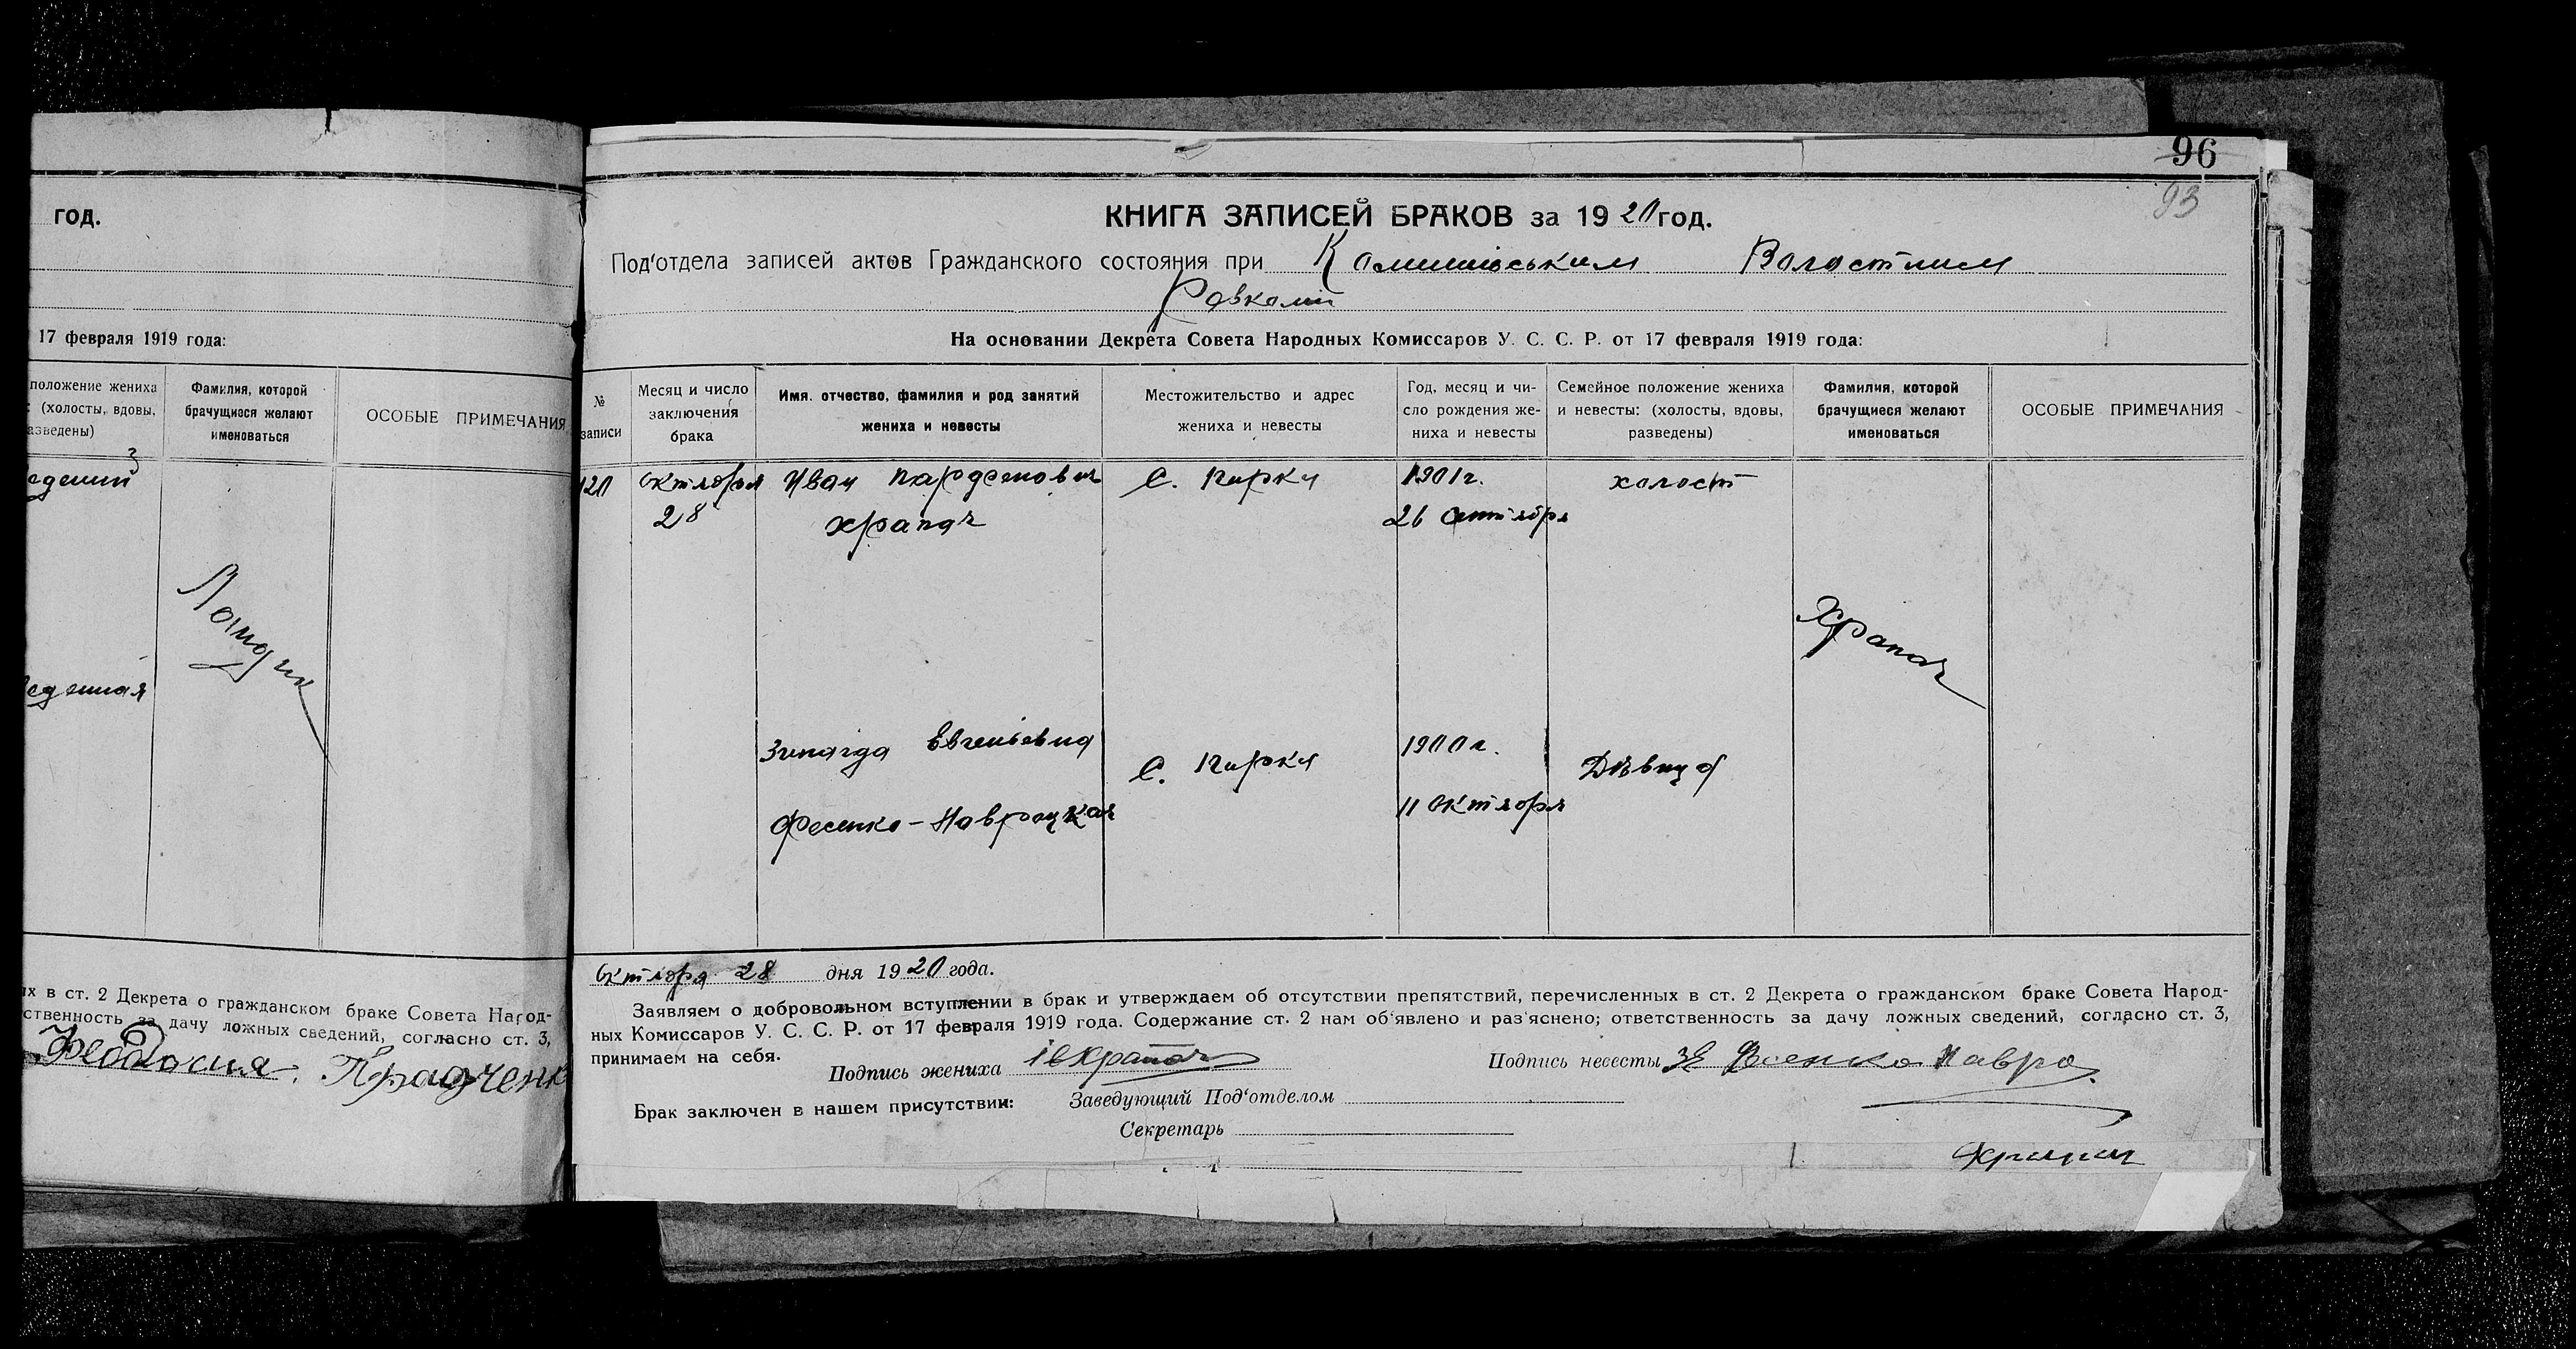 год.
17 февраля 1919 года:
положение жениха
(холосты, вдовы,
азведены)
Фамилия, которой
брачущиеся желают
именоваться
ОСОБЫЕ ПРИМЕЧАНИЯ
еденная
х в ст. 2 Декрета о гражданском браке Совета Народ-
ственность за дачу ложных сведений, согласно ст. 3,
Феодосия
96
93
КНИГА ЗАПИСЕЙ БРАКОВ за 1920 год.
Под'отдела записей актов Гражданского состояния при Волостним
Ревкомі
На основании Декрета Совета Народных Комиссаров У. С. С. Р. от 17 февраля 1919 года:
№
записи
Месяц и число
заключения
брака
Имя, отчество, фамилия и род занятий
жениха и невесты
Местожительство и адрес
жениха и невесты
Год, месяц и чи-
сло рождения же-
ниха и невесты
Семейное положение жениха
и невесты: (холосты, вдовы,
разведены)
Фамилия, которой
брачущиеся желают
именоваться
ОСОБЫЕ ПРИМЕЧАНИЯ
120 октября Иван Парфенович С. Пирки 1901 г. холост
28 Храпач 26 сентября
Храпач
Зинаіда Евгеніевна С. Пирки 1900 г. Дѣвица
Фесенко-Навроцкая 11 октября
Октября 28 дня 1920 года.
Заявляем о добровольном вступлении в брак и утверждаем об отсутствии препятствий, перечисленных в ст. 2 Декрета о гражданском браке Совета Народ-
ных Комиссаров У. С. С. Р. от 17 февраля 1919 года. Содержание ст. 2 нам об'явлено и раз'яснено; ответственность за дачу ложных сведений, согласно ст. 3,
принимаем на себя.
Подпись жениха Ів Храпач Подпись невесты Зе Фесенко Навро
Брак заключен в нашем присутствии: Заведующий Под'отделом
Секретарь